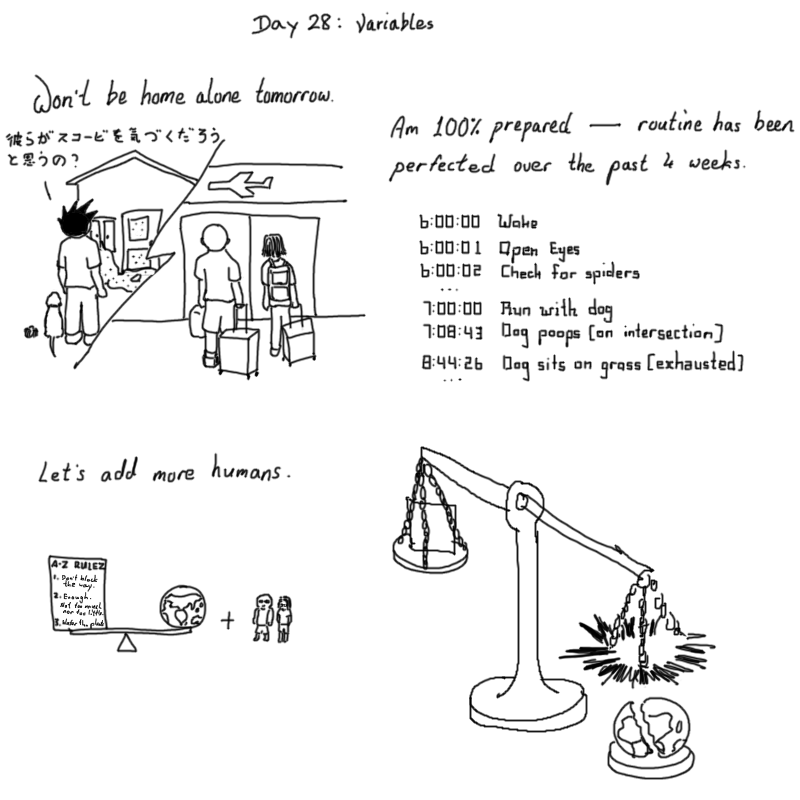 Day 28: Variables
Won't be home alone tomorrow.
彼らがスコービを気づくだろう
と思うの?
Am 100% prepared — routine has been
perfected over the past 4 weeks.
6:00:00 Wake
6:00:01 Open Eyes
6:00:02 Check for spiders
...
7:00:00 Run with dog
7:08:43 Dog poops [on intersection]
8:44:26 Dog sits on grass [exhausted]
...
Let's add more humans.
A-Z RULEZ
1. Don't block
the way.
2. Enough.
Not too much
nor too little.
3. Water the plants
+